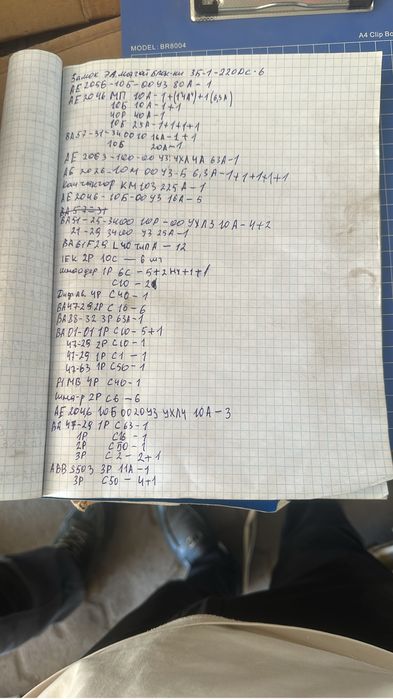 MODEL: BR8004
A4 Clip Bo
Замок ЭЛ.магн блок-ки ЗБ-1-220DC-6
АЕ 2056-10Б-00У3 80А-1
АЕ 2046 МП 10А-1+(1)+1(6,3А)
10Б 10А-1+1
40Р 40А-1
10Б 25А-1+1+1+1
ВА57-31-340010 16А-1+1
10Б 20А-1
АЕ 2063-100-00 У3 УХЛ4А 63А-1
АЕ 2026-10М 00У3-Б 6,3А-1+1+1+1+1
Контактор КМ103 225А-1
АЕ2046-10Б-00У3 16А-5
ВА57-31
ВА51-25-3400 10Р-00 УХЛ3 10А-4+2
21-29 3400 У3 25А-1
ВА61F29 L40 типА-12
IEK 2Р 10С-6 шт
Шнайдер 1Р 6С-5+2+1+1
С10-2
Диф.ав 4Р С40-1
ВА47-29 2Р С16-6
ВА88-32 3Р 63А-1
ВА01-01 1Р С10-5+1
47-29 2Р С10-1
47-29 1Р С1-1
47-63 1Р С50-1
4Р С40-1
Шна-р 2Р С6-6
АЕ2046 10Б 0020У3 УХЛ4 10А-3
ВА47-29 1Р С63-1
1Р С16-1
2Р С50-1
3Р С2-2+1
АВВ S503 3Р 11А-1
3Р С50-4+1